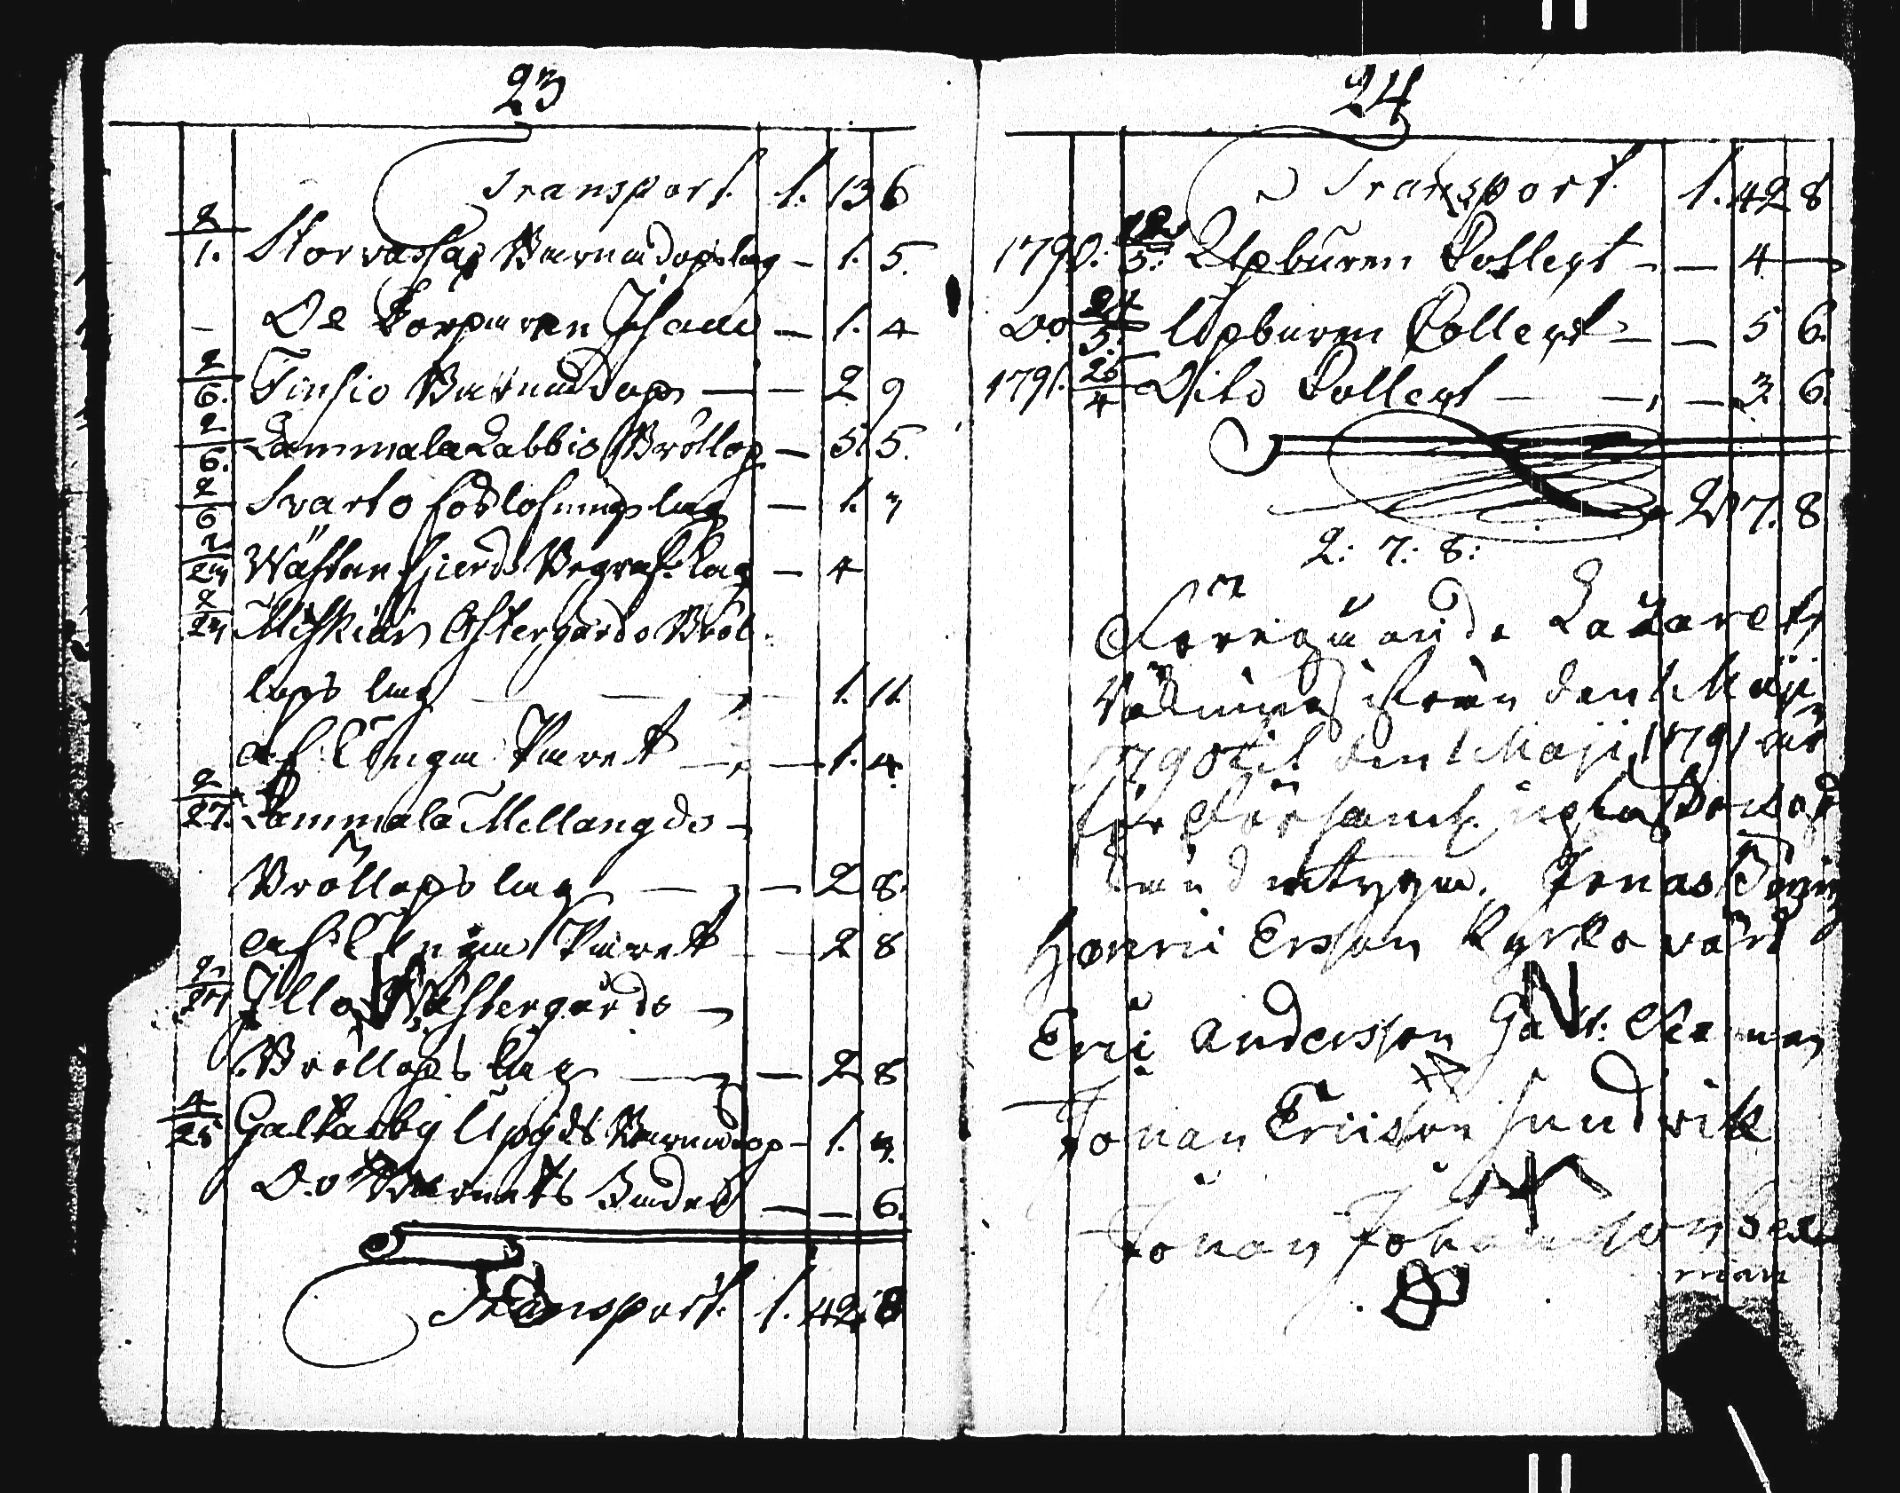 23
Transport. 1. 13 6
2/1. Storvassas Barnadopslag – 1. 5.
De Torparen Johan – 1. 4
2/6. Finsio Barnadop – – 2 9
2/6. Gammala Labbis Bröllop – 5 5.
2/6 Svarto lag – 1. 3
2/24 Wästan fjerds Begraf. lag – 4
2/24 Mishiärs Östergårds Bröl-
lops lag – 1. 11.
af Unga Paret – 1. 4.
2/27. Gammala Mellangds –
Bröllops lag – 2 8.
af Unga Paret – 2 8
2/27 Jlla Wästergårds –
Bröllops lag – 2 8
4/25 Galtarby Upgds Barnadop – 1. 3.
D:o Barnets – 6.
Transport. 1. 42 8
24
Transport. 1. 42 8
1790. 12/5. Upburen Collegt – – 4 –
D:o 24/5. Upburen Collegt – – 5 6.
1791. 25/4 Dito Collegt – – 3. 6.
2 7. 8
2: 7: 8:
Föregående Lazarets
Räkning ifrån den 1 Maji
1790 til den 1 Maji 1791 är
för Församl.
Jonas
Henric Ersson Kyrko värd
Eric Andersson Gast.
Johan Ericson sundvik
Johan Johansson
man